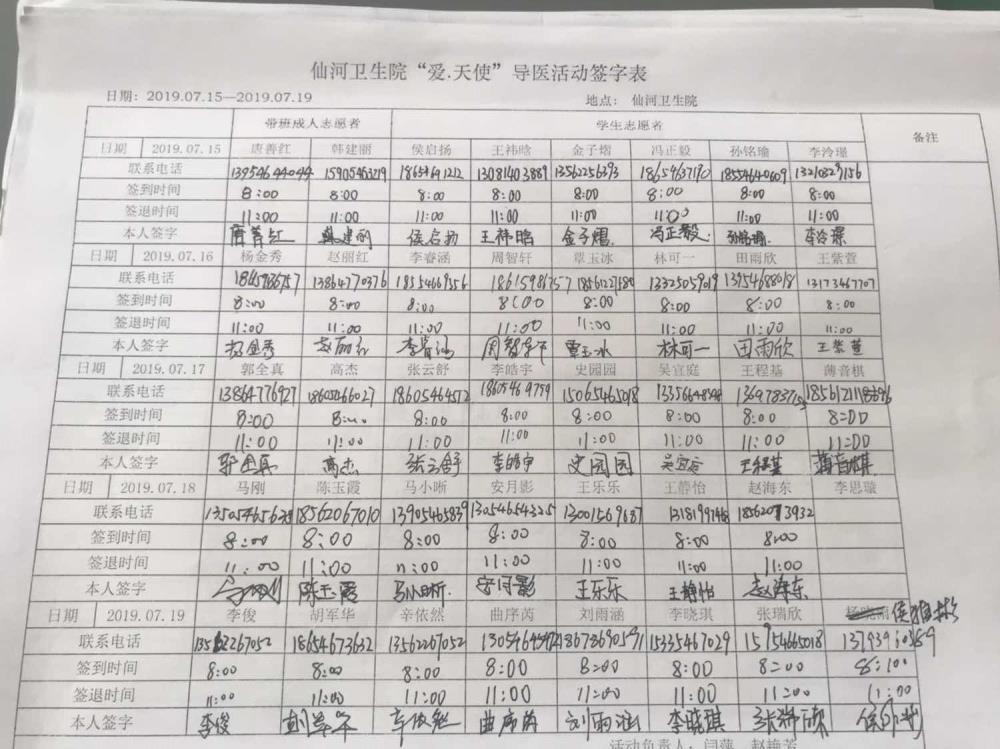 仙河卫生院“爱.天使”导医活动签字表
日期：2019.07.15—2019.07.19 地点： 仙河卫生院
带班成人志愿者 学生志愿者 备注
日期 2019.07.15 唐善红 韩建丽 侯启扬 王祎晗 金子熠 冯正毅 孙铭瑜 李泠璟
联系电话 13954644044 15905463219 18654641212 13081403889 13562256393 18659637190 18554640609
签到时间 8:00 8:00 8:00 8:00 8:00 8:00 8:00 8:00
签退时间 11:00 11:00 11:00 11:00 11:00 11:00 11:00 11:00
本人签字 唐善红 韩建丽 侯启扬 王祎晗 金子熠 冯正毅 孙铭瑜 李泠璟
日期 2019.07.16 杨金秀 赵丽红 李睿涵 周智轩 覃玉冰 林可一 田雨欣 王紫萱
联系电话 13864770376 18554669356 18615986757 18561227180 13325059019 13954688018 13173467707
签到时间 8:00 8:00 8:00 8:00 8:00 8:00 8:00 8:00
签退时间 11:00 11:00 11:00 11:00 11:00 11:00 11:00 11:00
本人签字 杨金秀 赵丽红 李睿涵 周智轩 覃玉冰 林可一 田雨欣 王紫萱
日期 2019.07.17 郭全真 高杰 张云舒 李皓宇 史园园 吴宜庭 王程基 薄音棋
联系电话 13864776927 18605466027 18605464572 18605469759 15065465018
签到时间 8:00 8:00 8:00 8:00 8:00 8:00 8:00 8:00
签退时间 11:00 11:00 11:00 11:00 11:00 11:00 11:00 11:00
本人签字 郭全真 高杰 张云舒 李皓宇 史园园 吴宜庭 王程基 薄音棋
日期 2019.07.18 马刚 陈玉霞 马小晰 安月影 王乐乐 王静怡 赵海东 李思璇
联系电话 18562067010 13905465839 13054654325 13001569687 18562073932
签到时间 8:00 8:00 8:00 8:00 8:00 8:00 8:00
签退时间 11:00 11:00 11:00 11:00 11:00 11:00 11:00
本人签字 马刚 陈玉霞 马小晰 安月影 王乐乐 王静怡 赵海东
日期 2019.07.19 李俊 胡军华 辛依然 曲序芮 刘雨涵 李晓琪 张瑞欣
联系电话 18654673632 13562267052 18678690591 15335467029 15954665018
签到时间 8:00 8:00 8:00 8:00 8:00 8:00 8:00 8:00
签退时间 11:00 11:00 11:00 11:00 11:00 11:00 11:00 11:00
本人签字 李俊 胡军华 辛依然 曲序芮 刘雨涵 李晓琪 张瑞欣
活动负责人：闫萍 赵艳芳